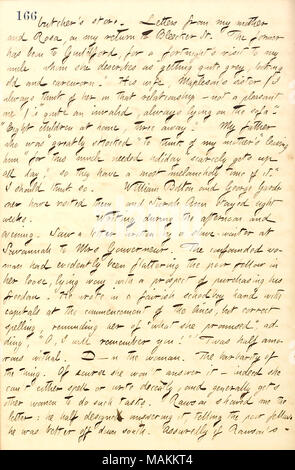 166
butcher's store. Letters from my mother
and Rosa, on my return to Bleecker St. The former
has been to Guildford, for a fortnight's visit to my
uncle whom she describes as getting quite grey, looking
old and careworn. His wife, Mapleson's sister (I
always think of her in that relationship — not a pleasant
one) is quite an invalid, "always lying on the sofa."
"Eight children at home, three away." My father
she was greatly
him for this much needed holiday scarcely gets up
all day; so they have a most melancholy time of it."
I should think so. William Bolton and George Gard-
ner have visited them and Sarah Ann stayed eight
weeks. Writing during the afternoon and
evening. Saw a letter written by a slave-waiter at
Savannah to Mrs Gouverneur. The confounded wo-
man had evidently been flattering the poor fellow in
her loose, lying way with a prospect of purchasing his
freedom. He wrote in a fairish schoolboy hand with
capitals at the commencement of the lines, but correct
spelling, reminding her of "what she promised" ad-
ding "O, I will remember you!" I was half am-
orous withal. D—n the woman. The barbarity of
the thing. Of course she won't answer it — indeed she
can't either spell or write decently, and generally gets
other women to do such tasks. Rawson showed me the
letter: he half designed answering it, telling the poor fellow
he was better off down south.
alamy
Image ID: MAKKT4
www.alamy.com